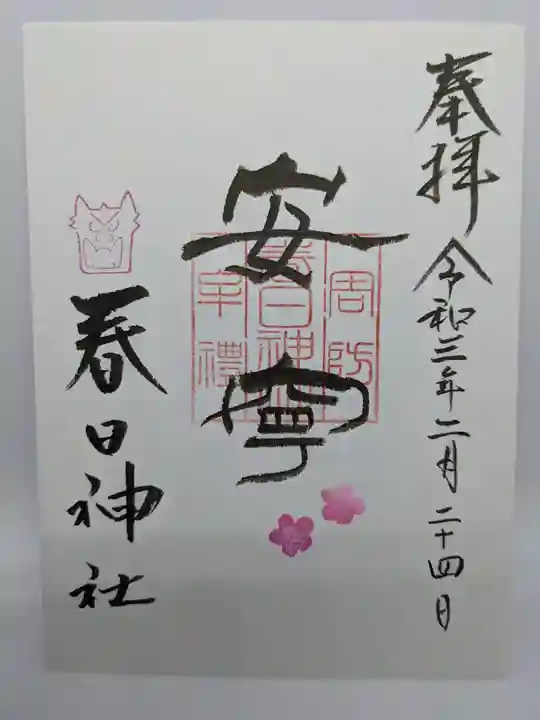 奉拝
令和三年二月二十四日
安寧
周防
春日神社
牟禮
春日神社